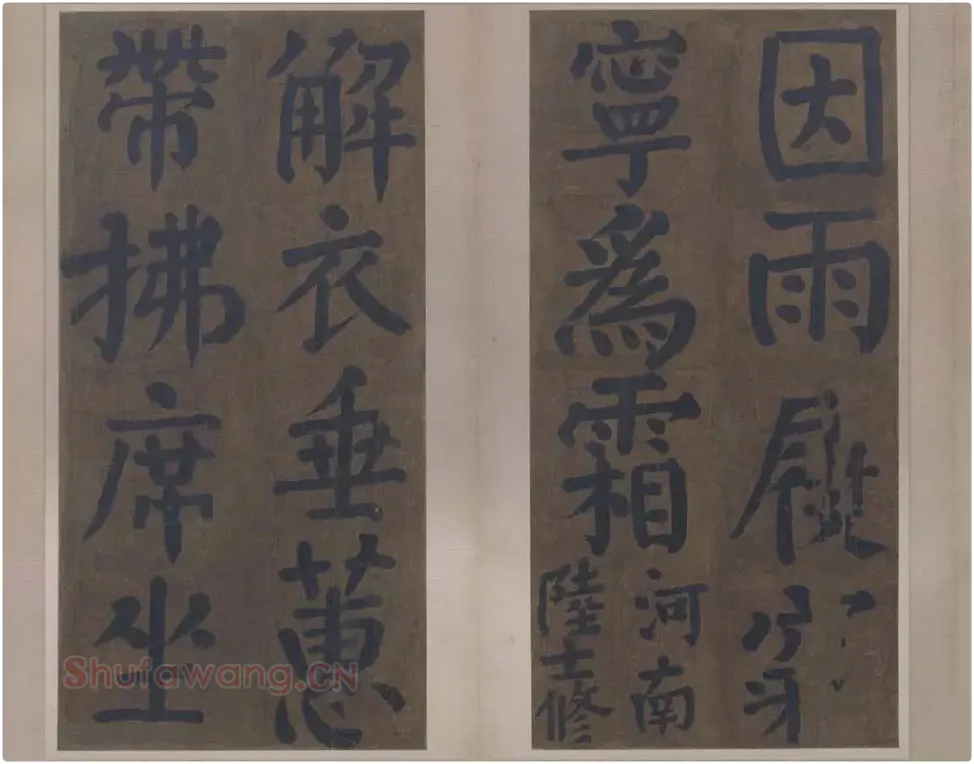 因雨履穿
寧爲霜
河南
陸士修
解衣垂蕙
帶拂席坐
Shufawang.CN